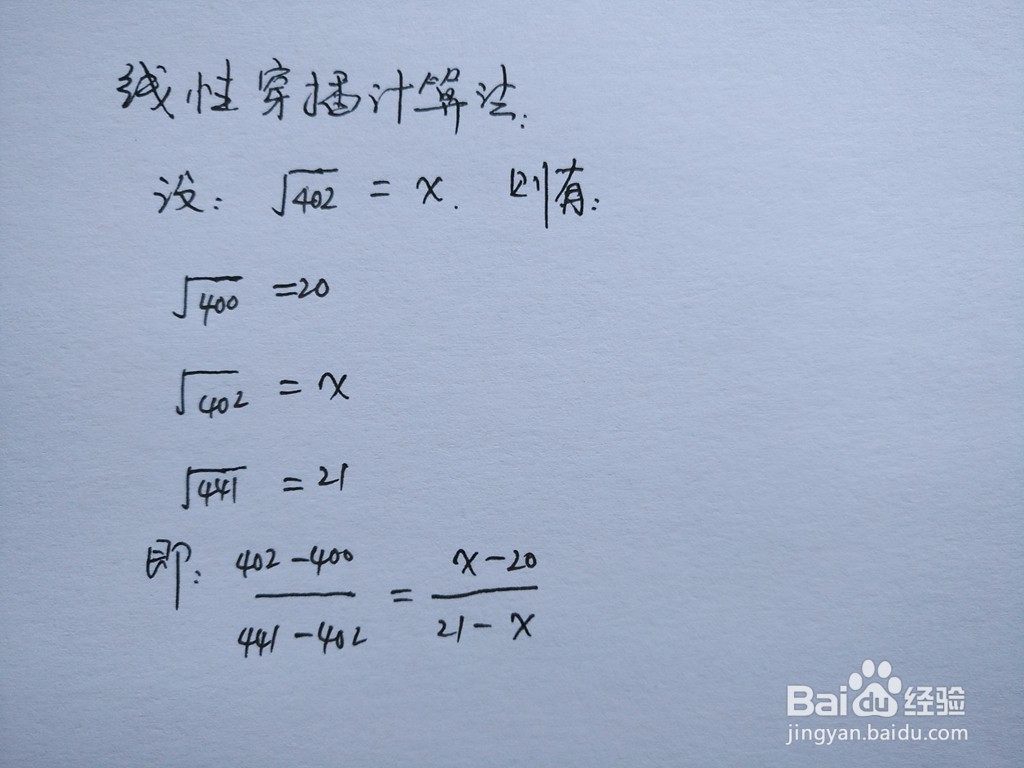 线性穿插计算法:
设: √402 = x. 则有:
√400 = 20
√402 = x
√441 = 21
即: (402-400)/(441-402) = (x-20)/(21-x)
Baidu经验
jingyan.baidu.com